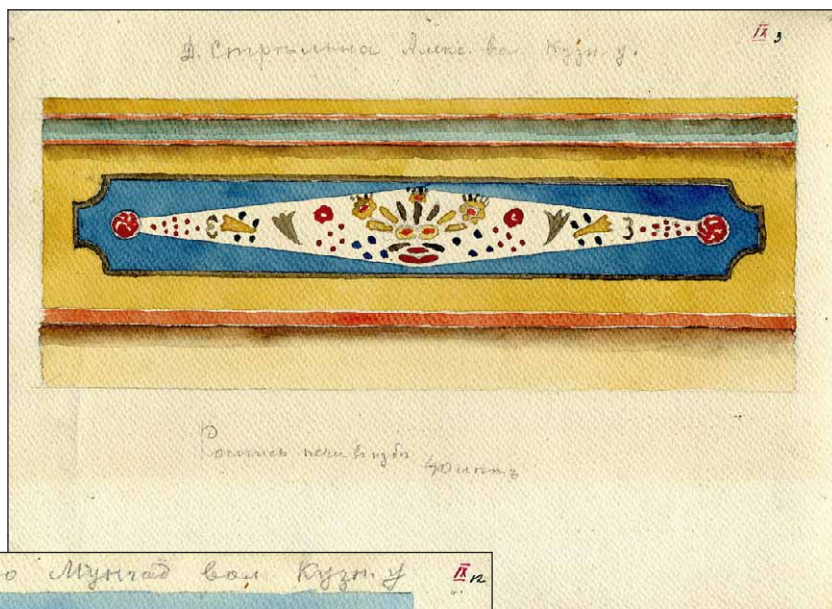 Д. Стрѣльна Алекс. вол. Кузн. у.
IX 3
Роспись печи въ избѣ
о Мунгад вол Кузн. у
IX 12